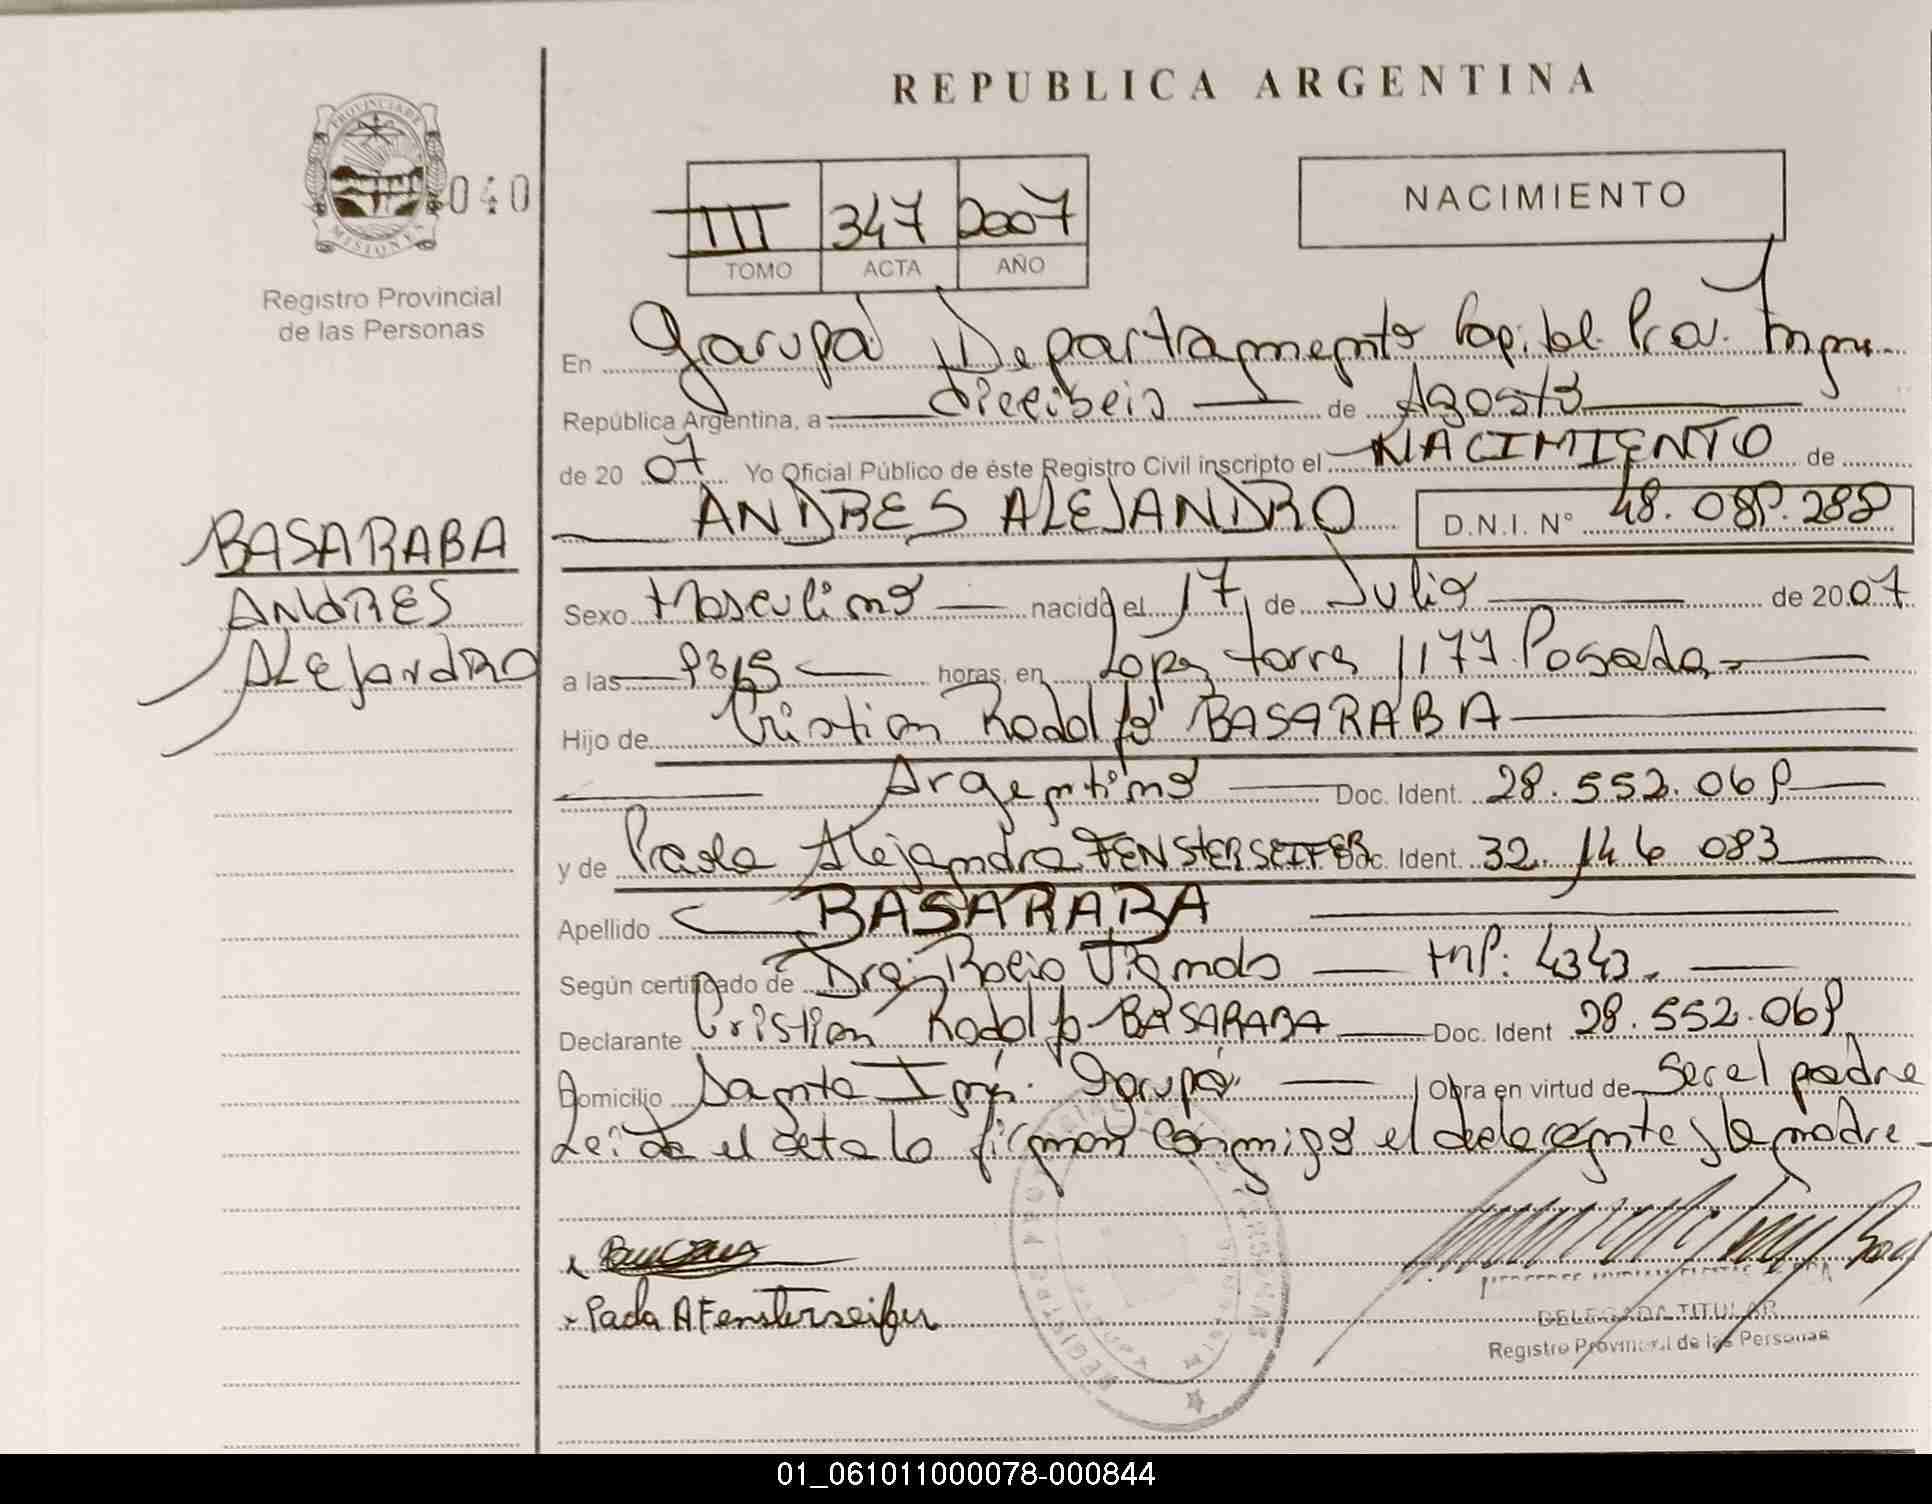 REPUBLICA ARGENTINA
PROVINCIA DE
MISIONES
040
Registro Provincial
de las Personas
III 347 2007
TOMO ACTA AÑO
NACIMIENTO
En Garupá Departamento Capital Prov.
República Argentina, a dieciseis de Agosto
de 20 07 Yo Oficial Público de éste Registro Civil inscripto el NACIMIENTO de
ANDRES ALEJANDRO D.N.I. Nº 48.089.288
BASARABA
ANDRES
ALEJANDRO
Sexo Masculino nacido el 17 de Julio de 2007
a las horas, en Lopez torres 1177 Posadas
Hijo de Cristian Rodolfo BASARABA
Argentino Doc. Ident. 28.552.069
y de Paola Alejandra FENSTERSEIFER Doc. Ident. 32.146 083
Apellido BASARABA
Según certificado de Dra. Rocio MP: 4343.
Declarante Cristian Rodolfo BASARABA Doc. Ident 28.552.069
Domicilio Santa Inés. Garupá. Obra en virtud de Ser el padre
Leida el acta la firman conmigo el declarante y la madre
Paola A Fensterseifer
DELEGADA TITULAR
Registro Provincial de las Personas
01_061011000078-000844